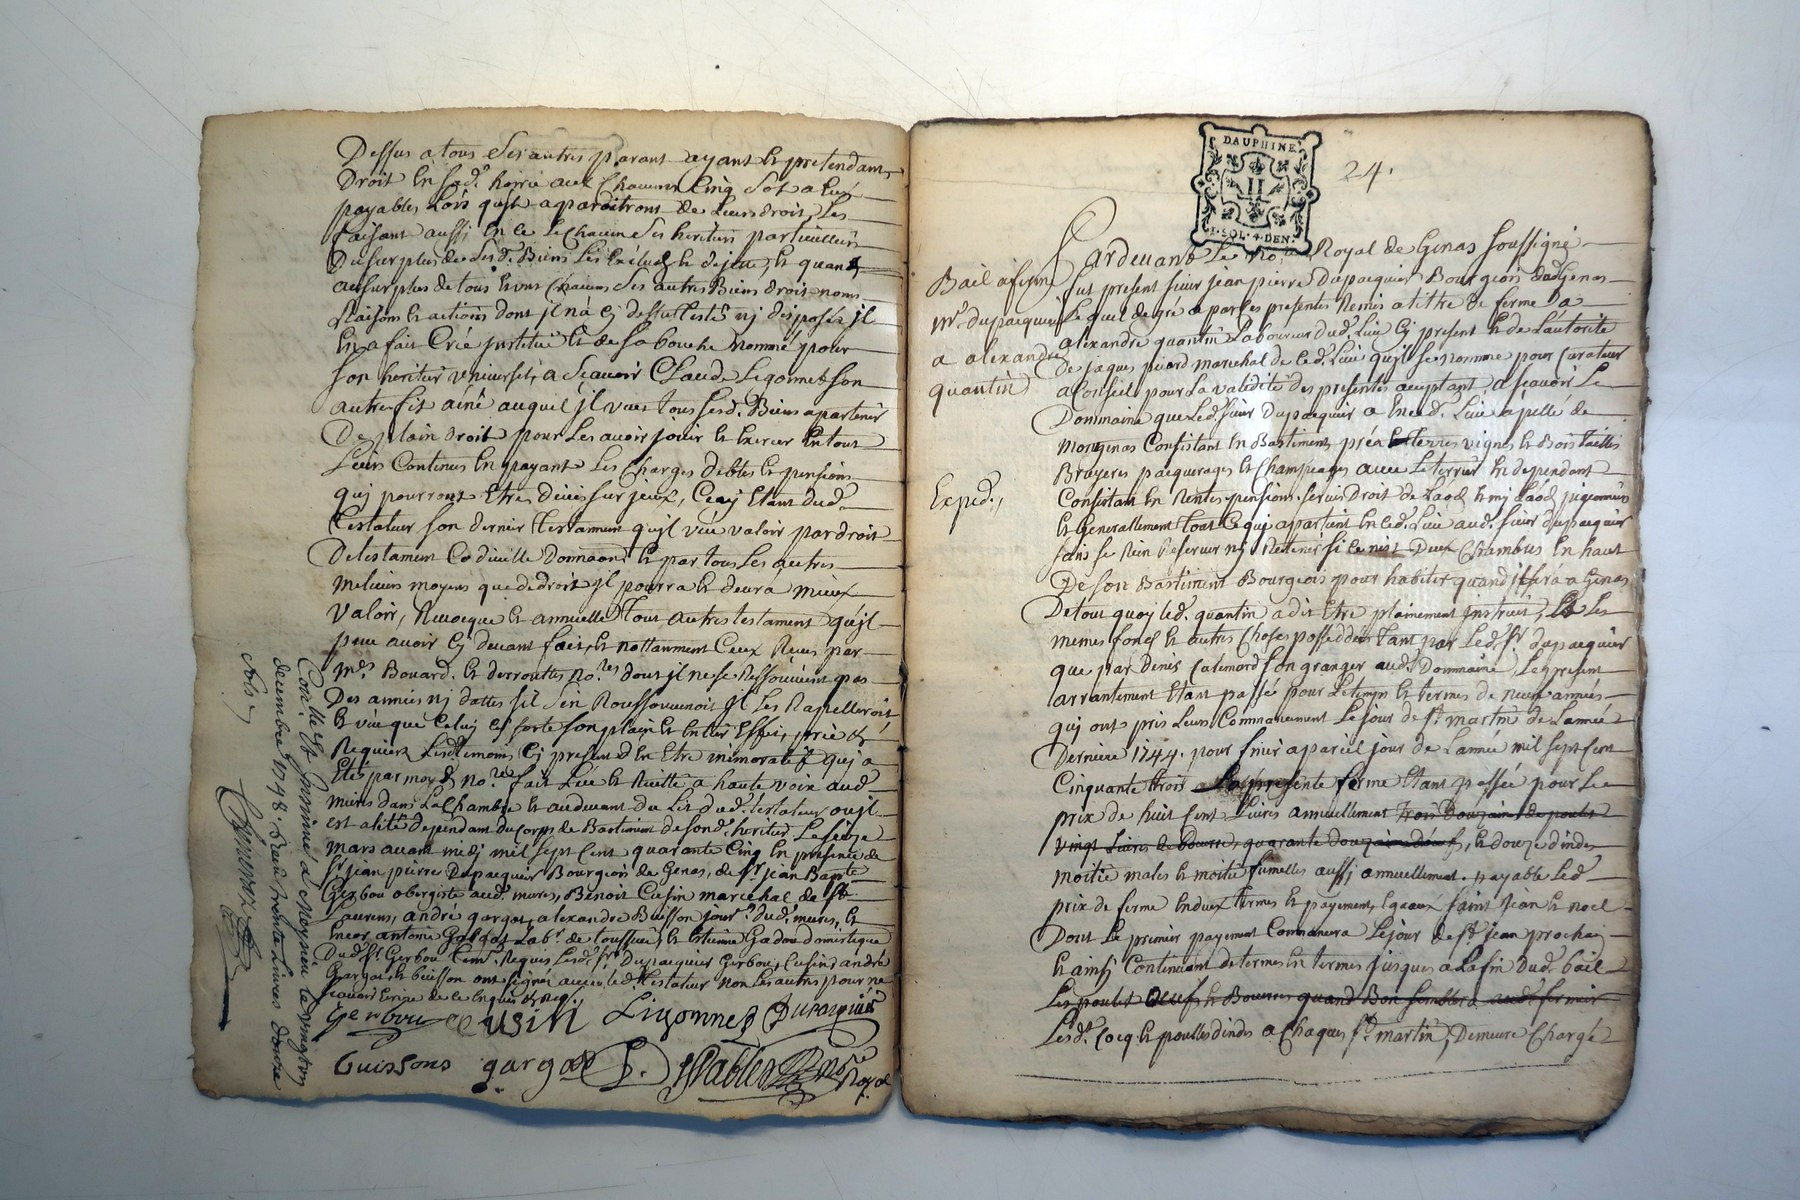 Dessus a tous Ses autres parant ayant et pretendant
Droit en sad.e hoirie aux Chacuns Cinq Sol a Eux
payables Lors quils aparoitront de Leurs droit, Les
faisant aussi en ce Le Chacun Ses heritiers particuliers
Du surplus de Sesd. Biens Les Exclud et dejette, et quand
au surplus de tous et uns Chacuns Ses autres Biens droit noms
Raisons et actions dont jl na Cj dessus testé nj disposés jl
En a fait Créé jnstitué et de Sa bouche Nommé pour
Son heritier Universel, a Scavoir Claude Ligonnet Son
autre fils ainé auquel jl veut tous Sesd. Biens apartenir
De plain droit pour Les avoir jouir et Exercer En tout
Leurs Contenus En payant Les Charges debtes et pensions
quj pourront Etre deües sur jceux, Cecy Etant dud.
testateur Son dernier testament qujl veu valoir par droit
De testament Codicille Donnaon et par tous Les autres
meilieurs moyens que de droit jl pourra et devra mieux
Valoir, Revocque et annulle tout autres testament qu'jl
peu avoir Cj devant fait, et nottamment Ceux Reçus par
m.es Bouard et derroutes no.res dont jl ne se Ressouvient pas
Des années nj dattes sil S'en Ressouvenoit jl Les Rapelleroit,
et veu que Celuj Cj sorte Son plain et Entier Effet, prie et
Requiert Lesd. temoins Cj present d'en Etre memoratif quj a
Eté par moyd. no.re fait Leu et Recitté a haute voix aud.
mures dans La Chambre et au devant du Lit dud. testateur ou jl
est alité dependant du Corps de Bastiment de Sond. heritier Le seize
mars avant medj mil sept Cent quarante Cinq En presence de
S.r jean pierre Dupacquier Bourgeois de Genas, de S.r jean Bapte
Gerbou obergiste aud. mures, Benoit Cusin marechal de St
Laurens, andré gargot, alexandre Buisson jour.r dud. mures, et
Encor antoine Gargot Lab.r de toussieu, et Estienne Gadou domestique
Dud. Sr Gerbou tem.s Requis Lesd. Sr Dupacquier Gerbou, Cusin, andré
Gargot, et buisson ont signés avec led. testateur non Les autres pour ne
Scavoir Ecrire de ce Enquis et Req.s
Gerbou Cusin Ligonnet Dupacquier
buissons gargot
Pablet no.re Royal
Con.lle et Jnsinué a Meyzieu le vingtun
decembre 1748. Receu trente Livres douze
sols
24.
DAUPHINE
II
1. SOL. 4. DEN.
Bail a ferme
m.r dupacquier
a alexandre
quantin
Exped.
Pardevant Le no.re Royal de Genas Soussigné
fut present sieur jean pierre Dupacquier Bourgeois dud. Genas
Lequel de gré a par Ces presentes Remis a titre de ferme a
alexandre quantin Laboureur dud. Lieu Cj present et de L'autorité
de jaques picard marechal de Led. Lieu qu'jl se nomme pour Curateur
a Conseil pour La validité des presentes acceptant, a scavoir Le
Dommaine que Led. Sieur Dupacquier a En ced. Lieu apellé de
monginas Consistant En Bastiments, préz, Terres vignes et Bois taillis
Bruyeres pacquerages et Champeages avec Le terrier En dependant
Consistant En Rentes pensions, servis Droit de Laod et mj Laod pigeonnier
et Generallement tout Ce quj apartient En Led. Lieu aud. sieur dupacquier
sans se Rien Reserver nj Retenir si ce nest Deux Chambres En haut
De son Bastiment Bourgeois pour habiter quand jl sera a Genas
De tout quoy led. quantin a dit Etre plainement jnstruit, Les
memes fonds et autres Choses possedées tant par Led. Sr dupacquier
que par Denis Calemard Son granger aud. Dommaine, Le present
arrantement Etant passé pour Le temps et termes de neuf années
quj ont pris Leurs Commancement Le jour de St martin de L'année
Derniere 1744. pour finir a pareil jour de L'année mil sept Cent
Cinquante trois La presente ferme Etant passée pour Le
prix de huit Cent Livres annuellement trois Douzaine de poulet
vingt Livres de Beurre, quarante douzaine d'œufs, et douze dindes
moitié males et moitié fumelles aussi annuellement. payable Led.
prix de ferme En deux termes et payement, Egeaux saint jean et noel
Dont Le premier payement Commancera Le jour de St jean prochain
et ainsj Continuant de termes En termes jusques a La fin dud. bail
Les poulet Œufs et Beurres quand Bon semblera aud. fermier
Lesd. Cocq et poulles dindes a Chaques St martin, Demeure Chargé